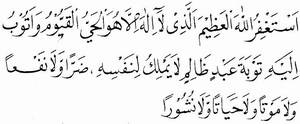 اَسْتَغْفِرُ اللهَ الْعَظِيْمَ الَّذِىْ لَآ اِلٰهَ اِلَّا هُوَ الْحَيُّ الْقَيُّوْمُ وَاَتُوْبُ
اِلَيْهِ تَوْبَةَ عَبْدٍ ظَالِمٍ لَا يَمْلِكُ لِنَفْسِهِ ضَرًّا وَلَا نَفْعًا
وَلَا مَوْتًا وَلَا حَيَاتًا وَلَا نُشُوْرًا